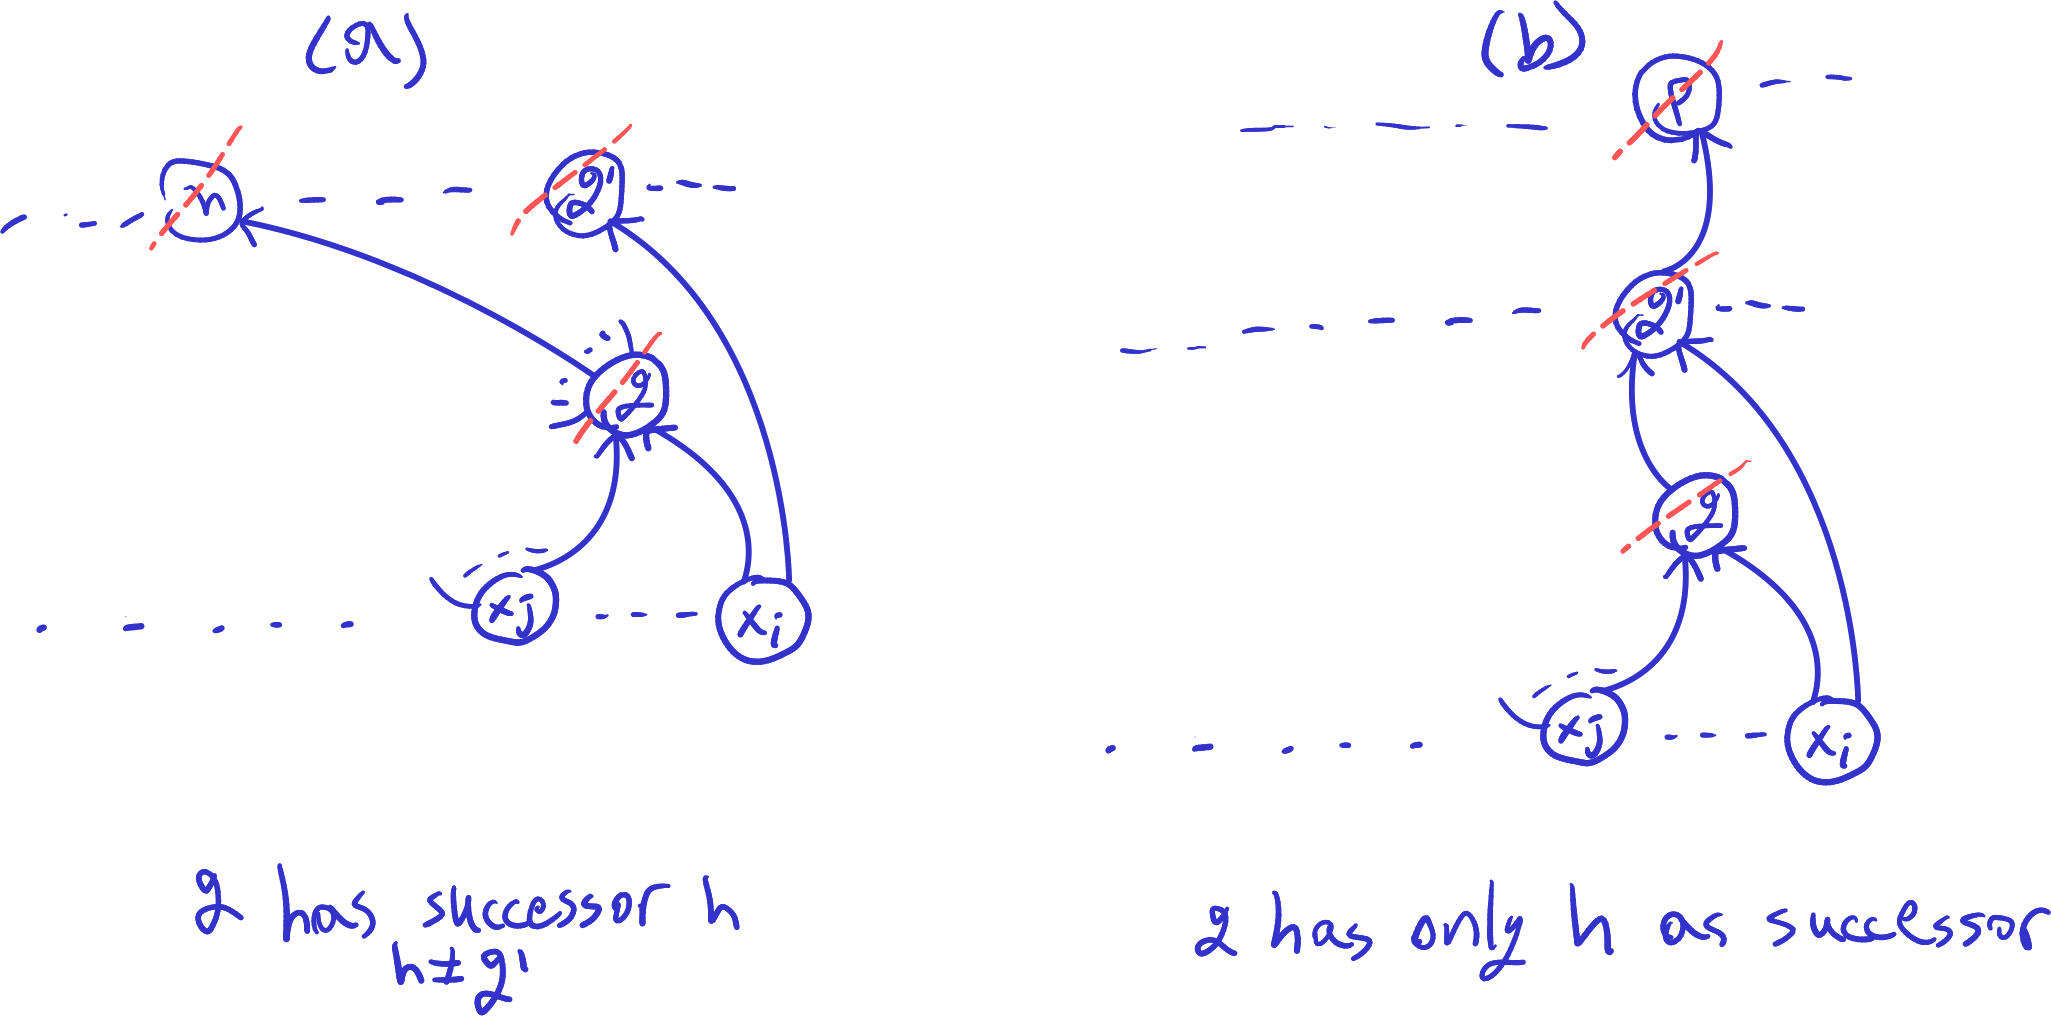 (a)
h
g'
g
xj
xi
g has successor h
h≠g'
(b)
p
g'
g
xj
xi
g has only h as successor